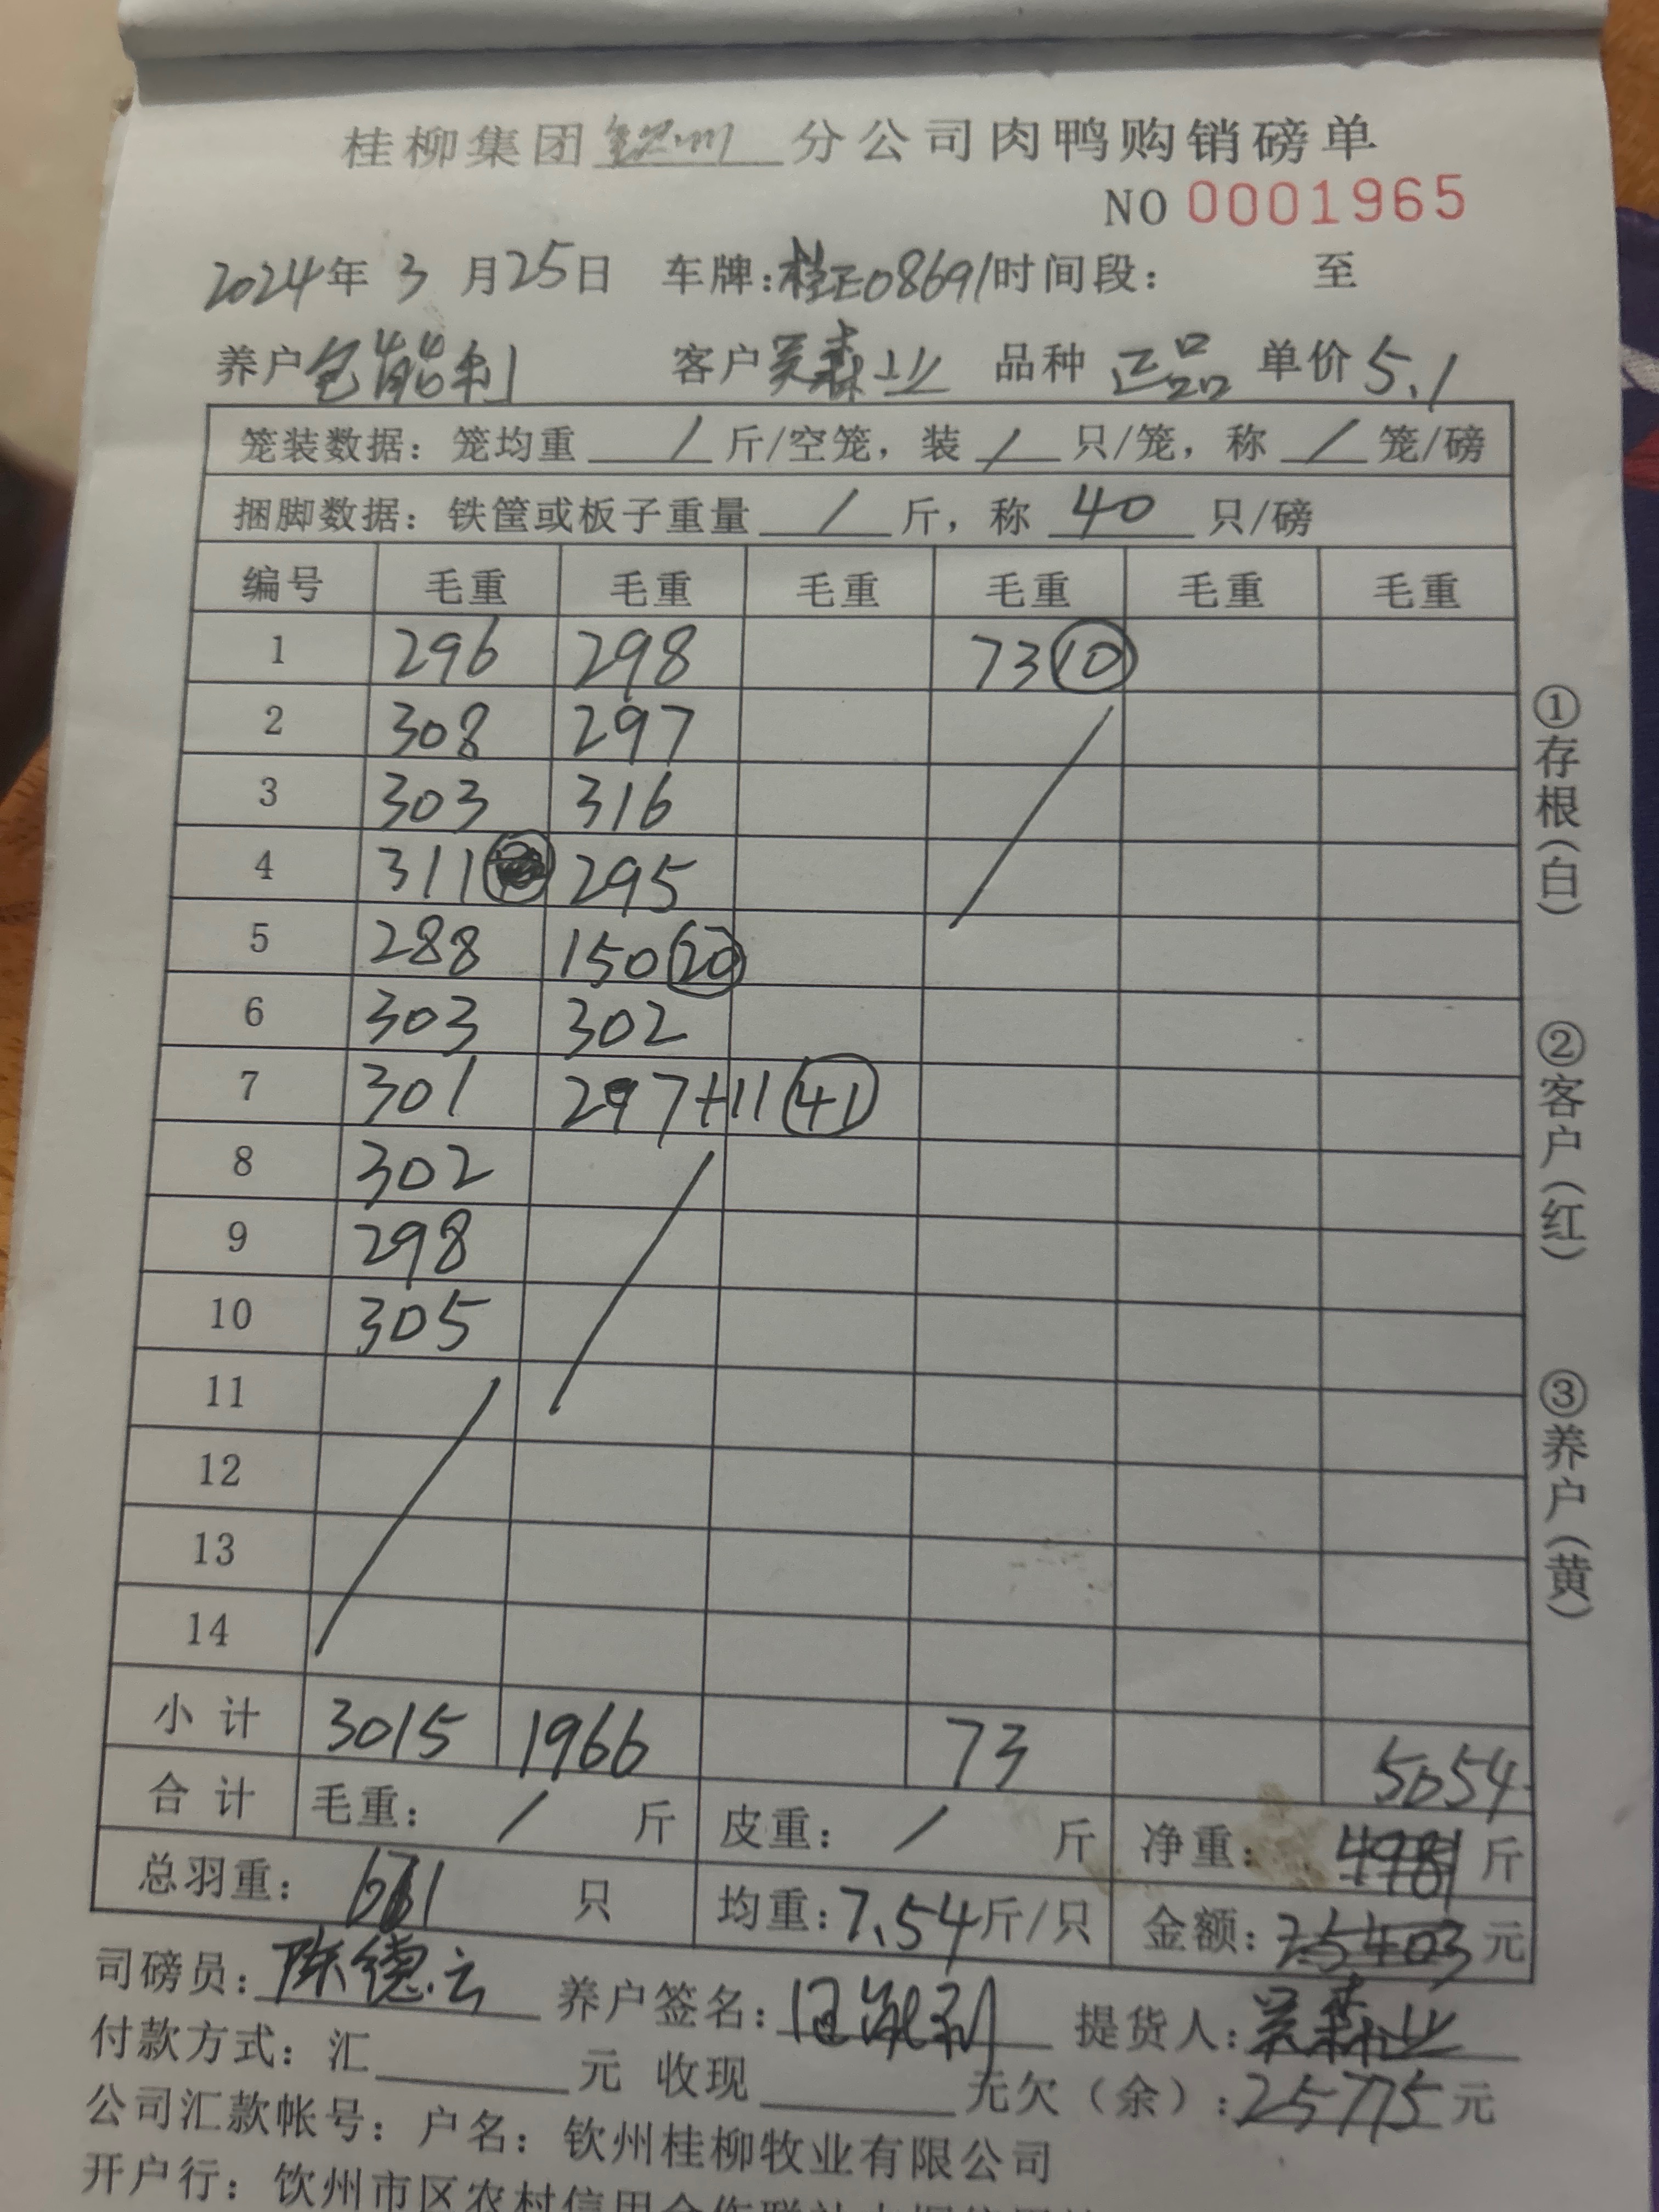 桂柳集团钦州分公司肉鸭购销磅单
NO 0001965
2024年3月25日 车牌:桂E08691时间段: 至
养户包能利 客户吴森业 品种 正品 单价5.1
笼装数据: 笼均重 / 斤/空笼, 装 / 只/笼, 称 / 笼/磅
捆脚数据: 铁筐或板子重量 / 斤, 称 40 只/磅
编号 毛重 毛重 毛重 毛重 毛重 毛重
1 296 298 73⑩
2 308 297
3 303 316
4 311 295
5 288 150⑳
6 303 302
7 301 297+11㊶
8 302
9 298
10 305
11
12
13
14
小计 3015 1966 73 5054
合计 毛重: / 斤 皮重: / 斤 净重: 4981 斤
总羽重: 661 只 均重: 7.54斤/只 金额: 25403 元
司磅员: 陈德云 养户签名: 包能利 提货人: 吴森业
付款方式: 汇 元 收现 元欠(余): 25775元
公司汇款帐号: 户名: 钦州桂柳牧业有限公司
开户行: 钦州市区农村信用合作联社
①存根(白)
②客户(红)
③养户(黄)